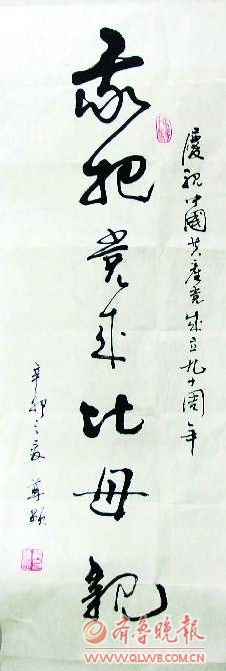 慶祝中國共產党成立九十周年
我把党来比母親
辛卯之夏
齐鲁晚报
WWW.QLWB.COM.CN